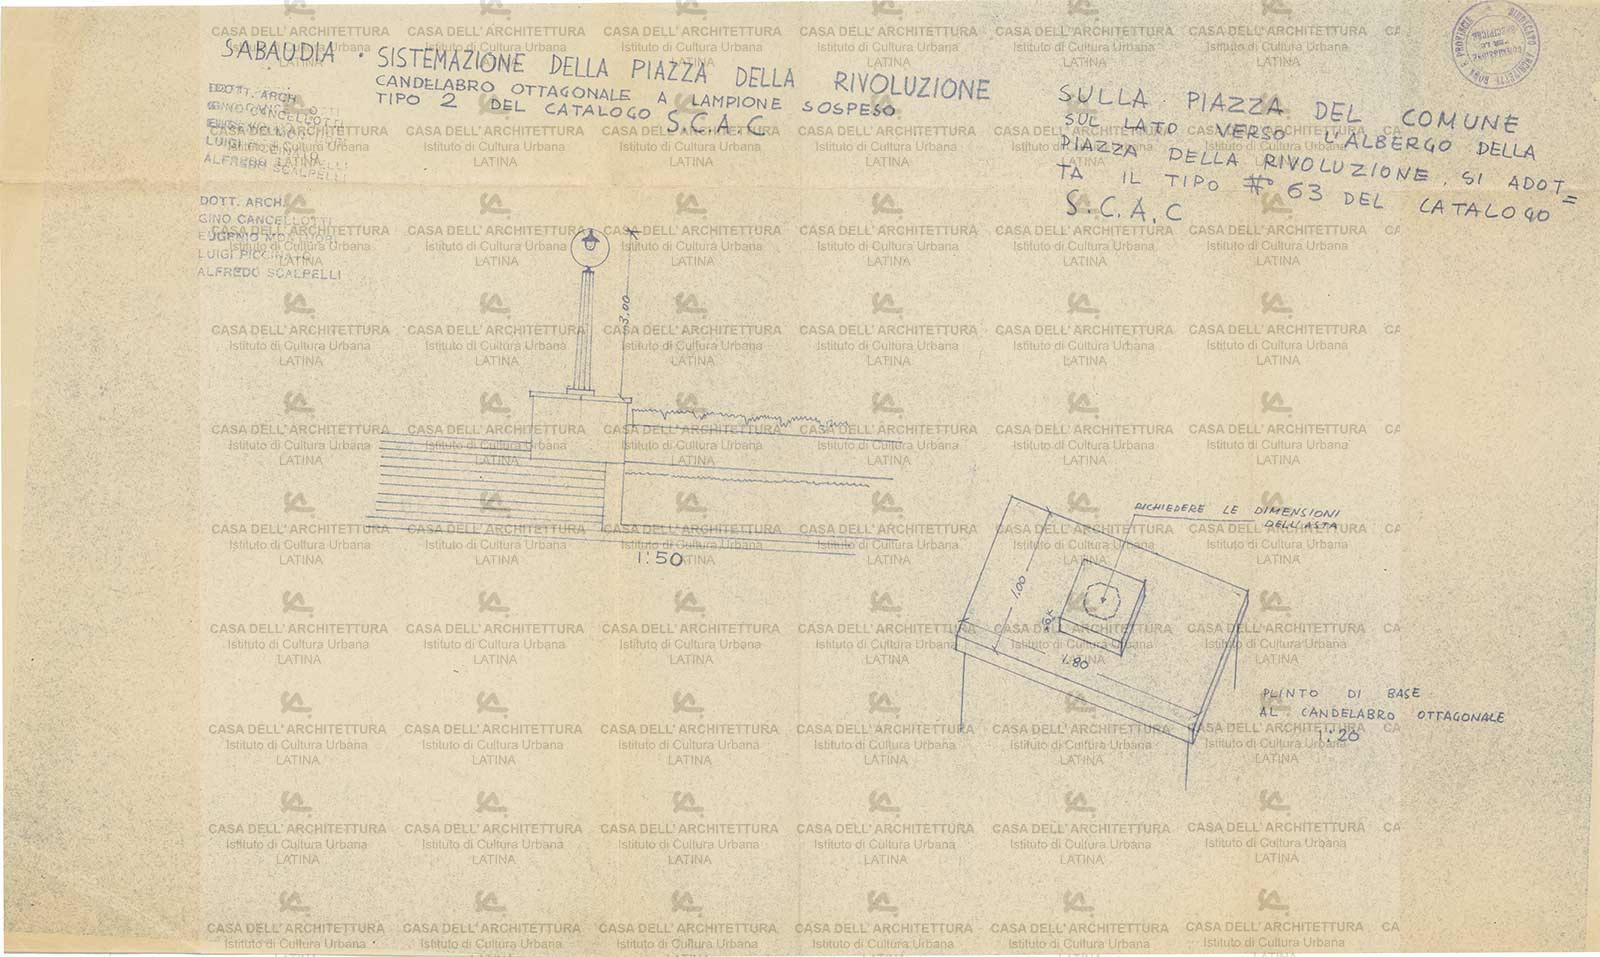 SABAUDIA · SISTEMAZIONE DELLA PIAZZA DELLA RIVOLUZIONE
CANDELABRO OTTAGONALE A LAMPIONE SOSPESO
TIPO 2 DEL CATALOGO S.C.A.C
DOTT. ARCH
GINO CANCELLOTTI
LUIGI PICCINATO
ALFREDO SCALPELLI
DOTT. ARCH.
GINO CANCELLOTTI
EUGENIO MONTUORI
LUIGI PICCINATO
ALFREDO SCALPELLI
SULLA PIAZZA DEL COMUNE
SUL LATO VERSO L'ALBERGO DELLA
PIAZZA DELLA RIVOLUZIONE, SI ADOT=
TA IL TIPO # 63 DEL CATALOGO
S.C.A.C
3.00
1:50
RICHIEDERE LE DIMENSIONI
DELL'ASTA
1.00
1.80
PLINTO DI BASE
AL CANDELABRO OTTAGONALE
1:20
CASA DELL'ARCHITETTURA
Istituto di Cultura Urbana
LATINA